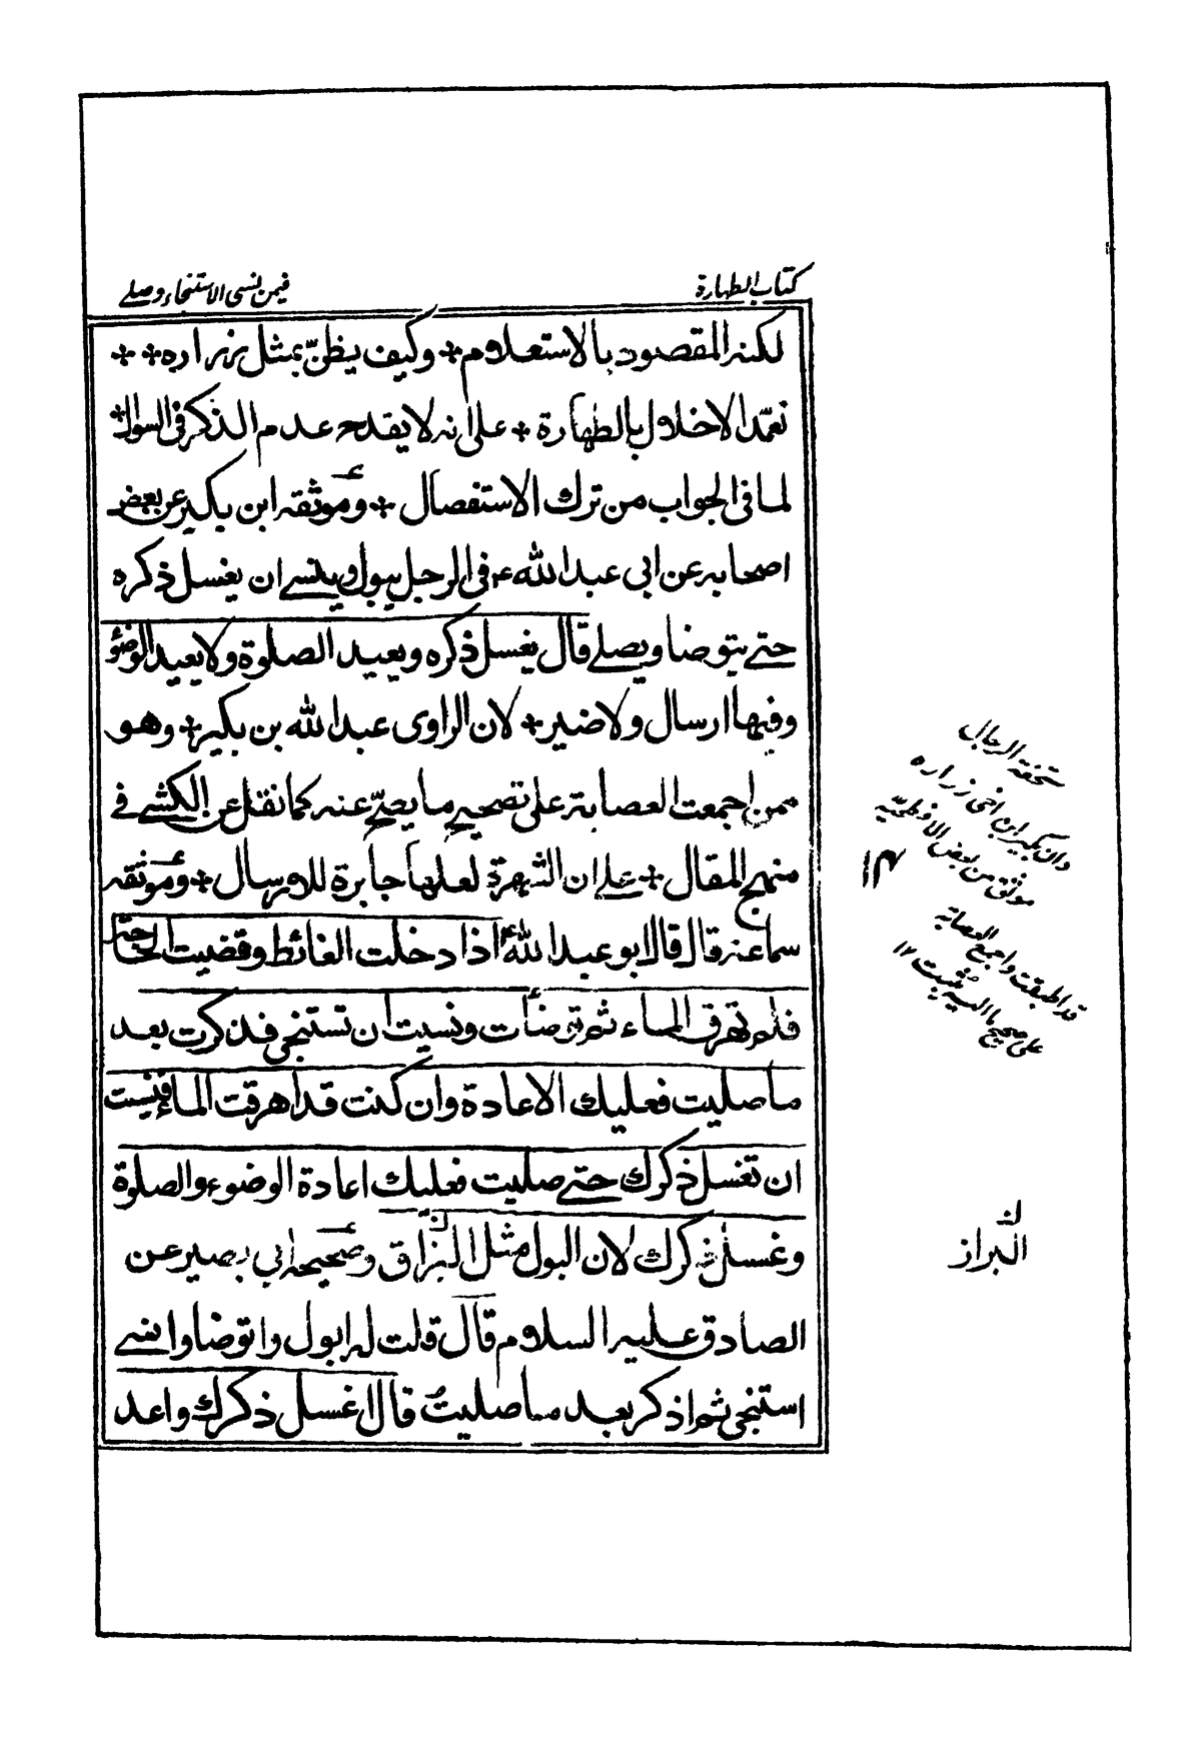 كتاب الطهارة
فيمن نسى الاستنجاء وصلے
لكنه المقصود بالاستعلام + وكيف يظنّ بمثل زراره + +
تعمّد الاخلال بالطهارة + على انه لا يقدح عدم الذكر فى السوال +
لما فى الجواب من ترك الاستفصال + وموثقه ابن بكير عن بعض
اصحابه عن ابى عبد الله ؑ فى الرجل يبول وينسے ان يغسل ذكره
حتے يتوضا ويصلے قال يغسل ذكره ويعيد الصلوة ولا يعيد الوضؤ
وفيها ارسال ولا ضير + لان الراوى عبد الله بن بكير + وهو
ممن اجمعت العصابة على تصحيح ما يصحّ عنه كما نقل عن الكشے فے
منهج المقال + علے ان الشهرة لعلها جابرة للارسال + وموثقه
سماعه قال قال ابو عبد الله ؑ اذا دخلت الغائط وقضيت الحاجة
فلم تهرق الماء ثم توضأت ونسيت ان تستنجى فذكرت بعد
ما صليت فعليك الاعادة وان كنت قد اهرقت الماء فنسيت
ان تغسل ذكرك حتے صليت فعليك اعادة الوضوء والصلوة
وغسل ذكرك لان البول مثل البزاق وصحيحه ابي بصير عن
الصادق عليه السلام قال قلت له ابول واتوضا وانسے
استنجى ثم اذكر بعد ما صليت قال اغسل ذكرك واعد
تحفة الرجال
وان بكير ابن اخى زراره
موثق من بعض الافطحيّه
۱۲
قد اطبقت واجمع العصابة
على صحيح ما اليه
ن
البراز